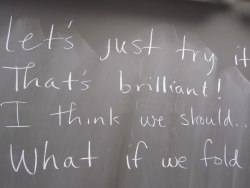 Let's just try it
That's brilliant!
I think we should...
What if we fold